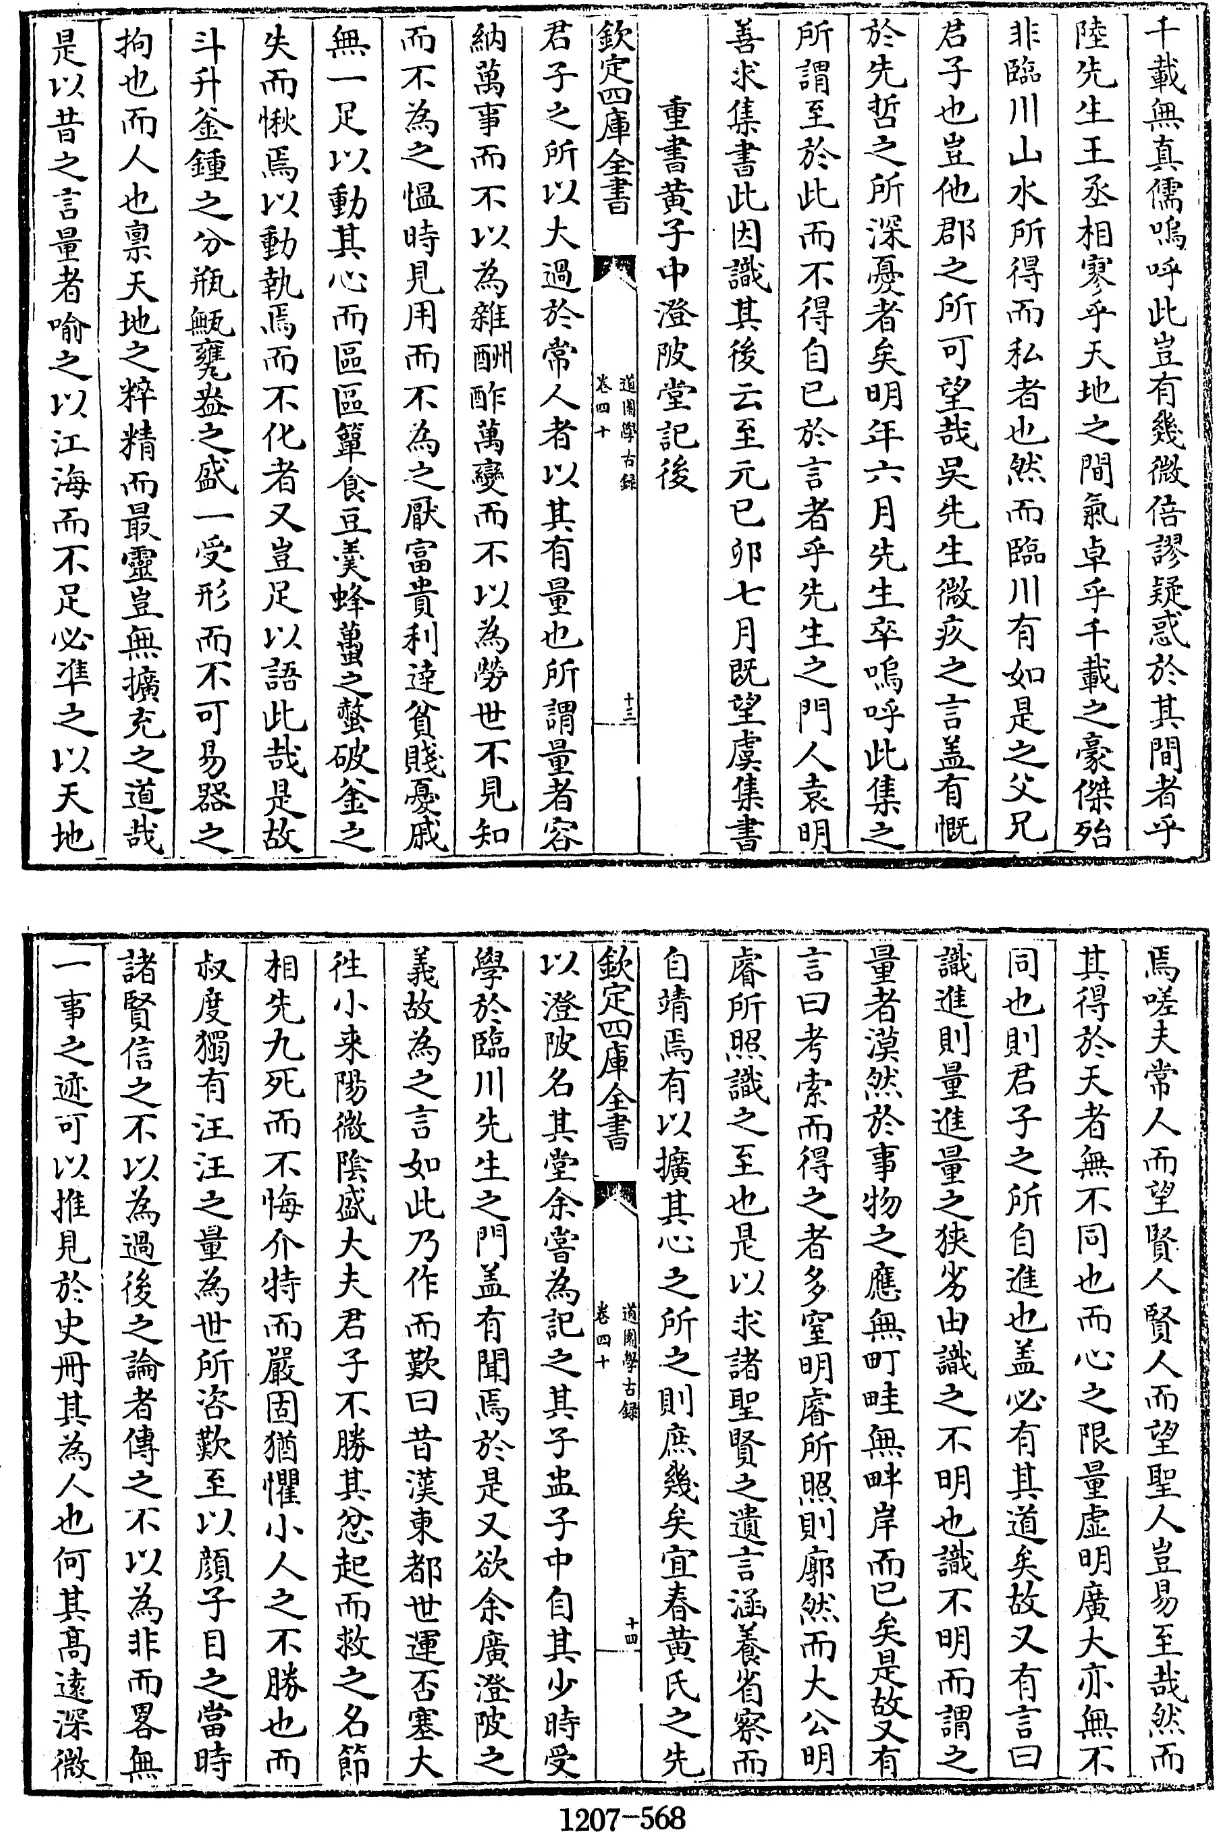 千載無真儒嗚呼此豈有幾微倍謬疑惑於其間者乎
陸先生王丞相寥乎天地之間氣卓乎千載之豪傑殆
非臨川山水所得而私者也然而臨川有如是之父兄
君子也豈他郡之所可望哉吳先生微疾之言盖有慨
於先哲之所深憂者矣明年六月先生卒嗚呼此集之
所謂至於此而不得自已於言者乎先生之門人袁明
善求集書此因識其後云至元己卯七月既望虞集書
重書黄子中澄陂堂記後
欽定四庫全書
道園學古録
卷四十
十三
君子之所以大過於常人者以其有量也所謂量者容
納萬事而不以為雜酬酢萬變而不以為勞世不見知
而不為之愠時見用而不為之厭富貴利達貧賤憂戚
無一足以動其心而區區簞食豆羹蜂蠆之螫破釜之
失而愀焉以動執焉而不化者又豈足以語此哉是故
斗升釜鍾之分瓶甒甕盎之盛一受形而不可易器之
拘也而人也禀天地之粹精而最靈豈無擴充之道哉
是以昔之言量者喻之以江海而不足必準之以天地
焉嗟夫常人而望賢人賢人而望聖人豈易至哉然而
其得於天者無不同也而心之限量虚明廣大亦無不
同也則君子之所自進也盖必有其道矣故又有言曰
識進則量進量之狹劣由識之不明也識不明而謂之
量者漠然於事物之應無町畦無畔岸而已矣是故又有
言曰考索而得之者多窒明睿所照則廓然而大公明
睿所照識之至也是以求諸聖賢之遺言涵養省察而
自靖焉有以擴其心之所之則庶幾矣宜春黄氏之先
欽定四庫全書
道園學古録
卷四十
十四
以澄陂名其堂余嘗為記之其子盅子中自其少時受
學於臨川先生之門盖有聞焉於是又欲余廣澄陂之
義故為之言如此乃作而歎曰昔漢東都世運否塞大
徃小来陽微陰盛大夫君子不勝其忿起而救之名節
相先九死而不悔介特而嚴固猶懼小人之不勝也而
叔度獨有汪汪之量為世所咨歎至以顔子目之當時
諸賢信之不以為過後之論者傳之不以為非而畧無
一事之迹可以推見於史冊其為人也何其髙逺深微
1207-568